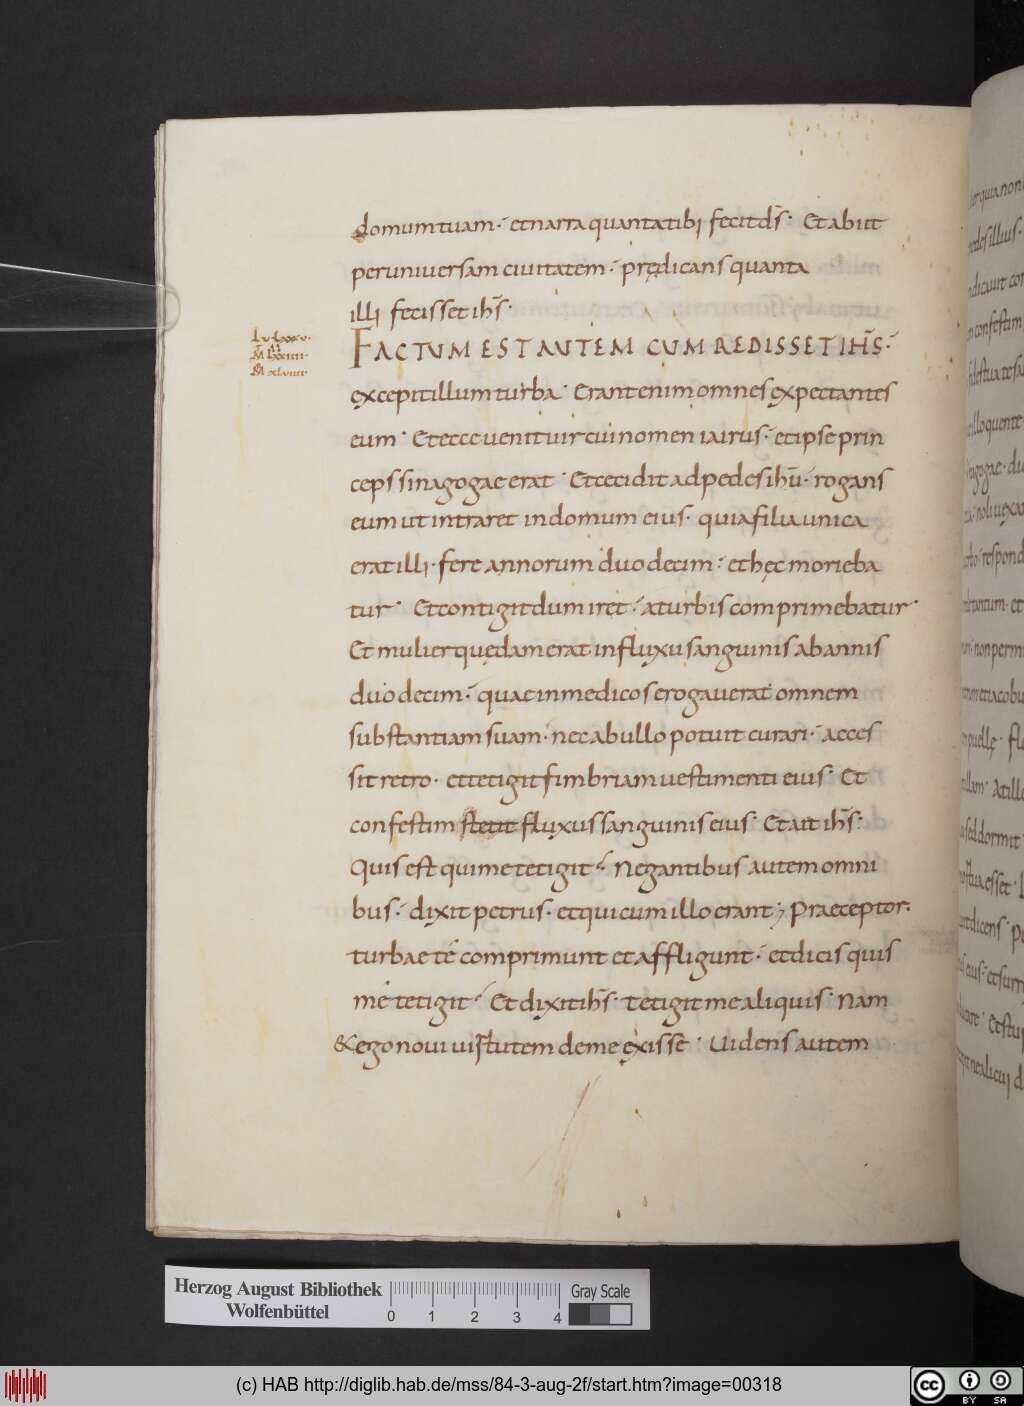 domum tuam· et narra quanta tibi fecit d̄s· Et abiit
per universam civitatem· prędicans quanta
illi fecisset ih̄s·
Lu lxxxv·
FACTUM EST AUTEM CUM REDISSET IH̄S·
excepit illum turba· Erant enim omnes expectantes
eum· Et ecce venit vir cui nomen iairus· et ipse prin
ceps sinagogae erat· Et cecidit ad pedes ih̄u· rogans
eum ut intraret in domum eius· quia filia unica
erat illi· fere annorum duodecim· et hęc morieba
tur· Et contigit dum iret· a turbis comprimebatur·
Et mulier quędam erat in fluxu sanguinis ab annis
duodecim· quae in medicos erogaverat omnem
substantiam suam· nec ab ullo potuit curari· acces
sit retro· et tetigit fimbriam vestimenti eius· Et
confestim stetit fluxus sanguinis eius· Et ait ih̄s·
Quis est qui me tetigit· Negantibus autem omni
bus· dixit petrus· et qui cum illo erant; Praeceptor·
turbae te comprimunt et affligunt· et dicis quis
me tetigit· Et dixit ih̄s· Tetigit me aliquis· Nam
& ego novi virtutem de me exisse· Videns autem
Herzog August Bibliothek
Wolfenbüttel
0 1 2 3 4
Gray Scale
(c) HAB http://diglib.hab.de/mss/84-3-aug-2f/start.htm?image=00318
cc BY SA